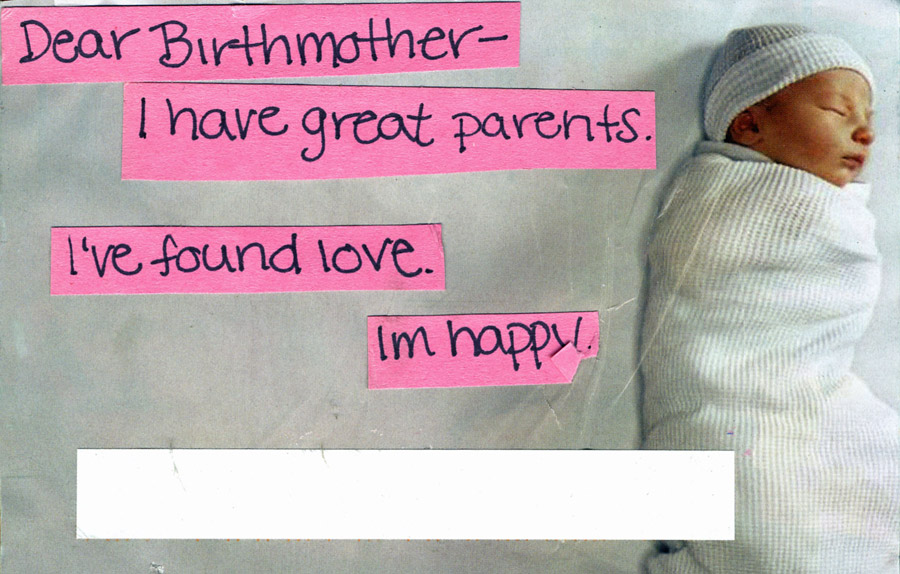 Dear Birthmother—
I have great parents.
I've found love.
Im happy.